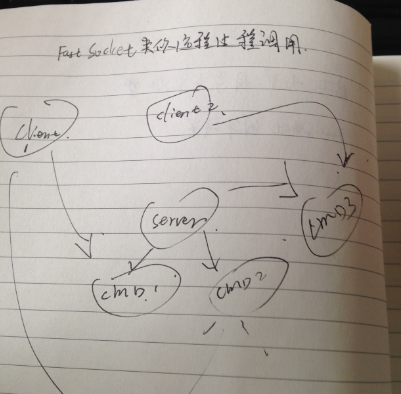 Fast Socket 类似远程过程调用.
client
client 2
server
CMD3
CMD1
CMD2